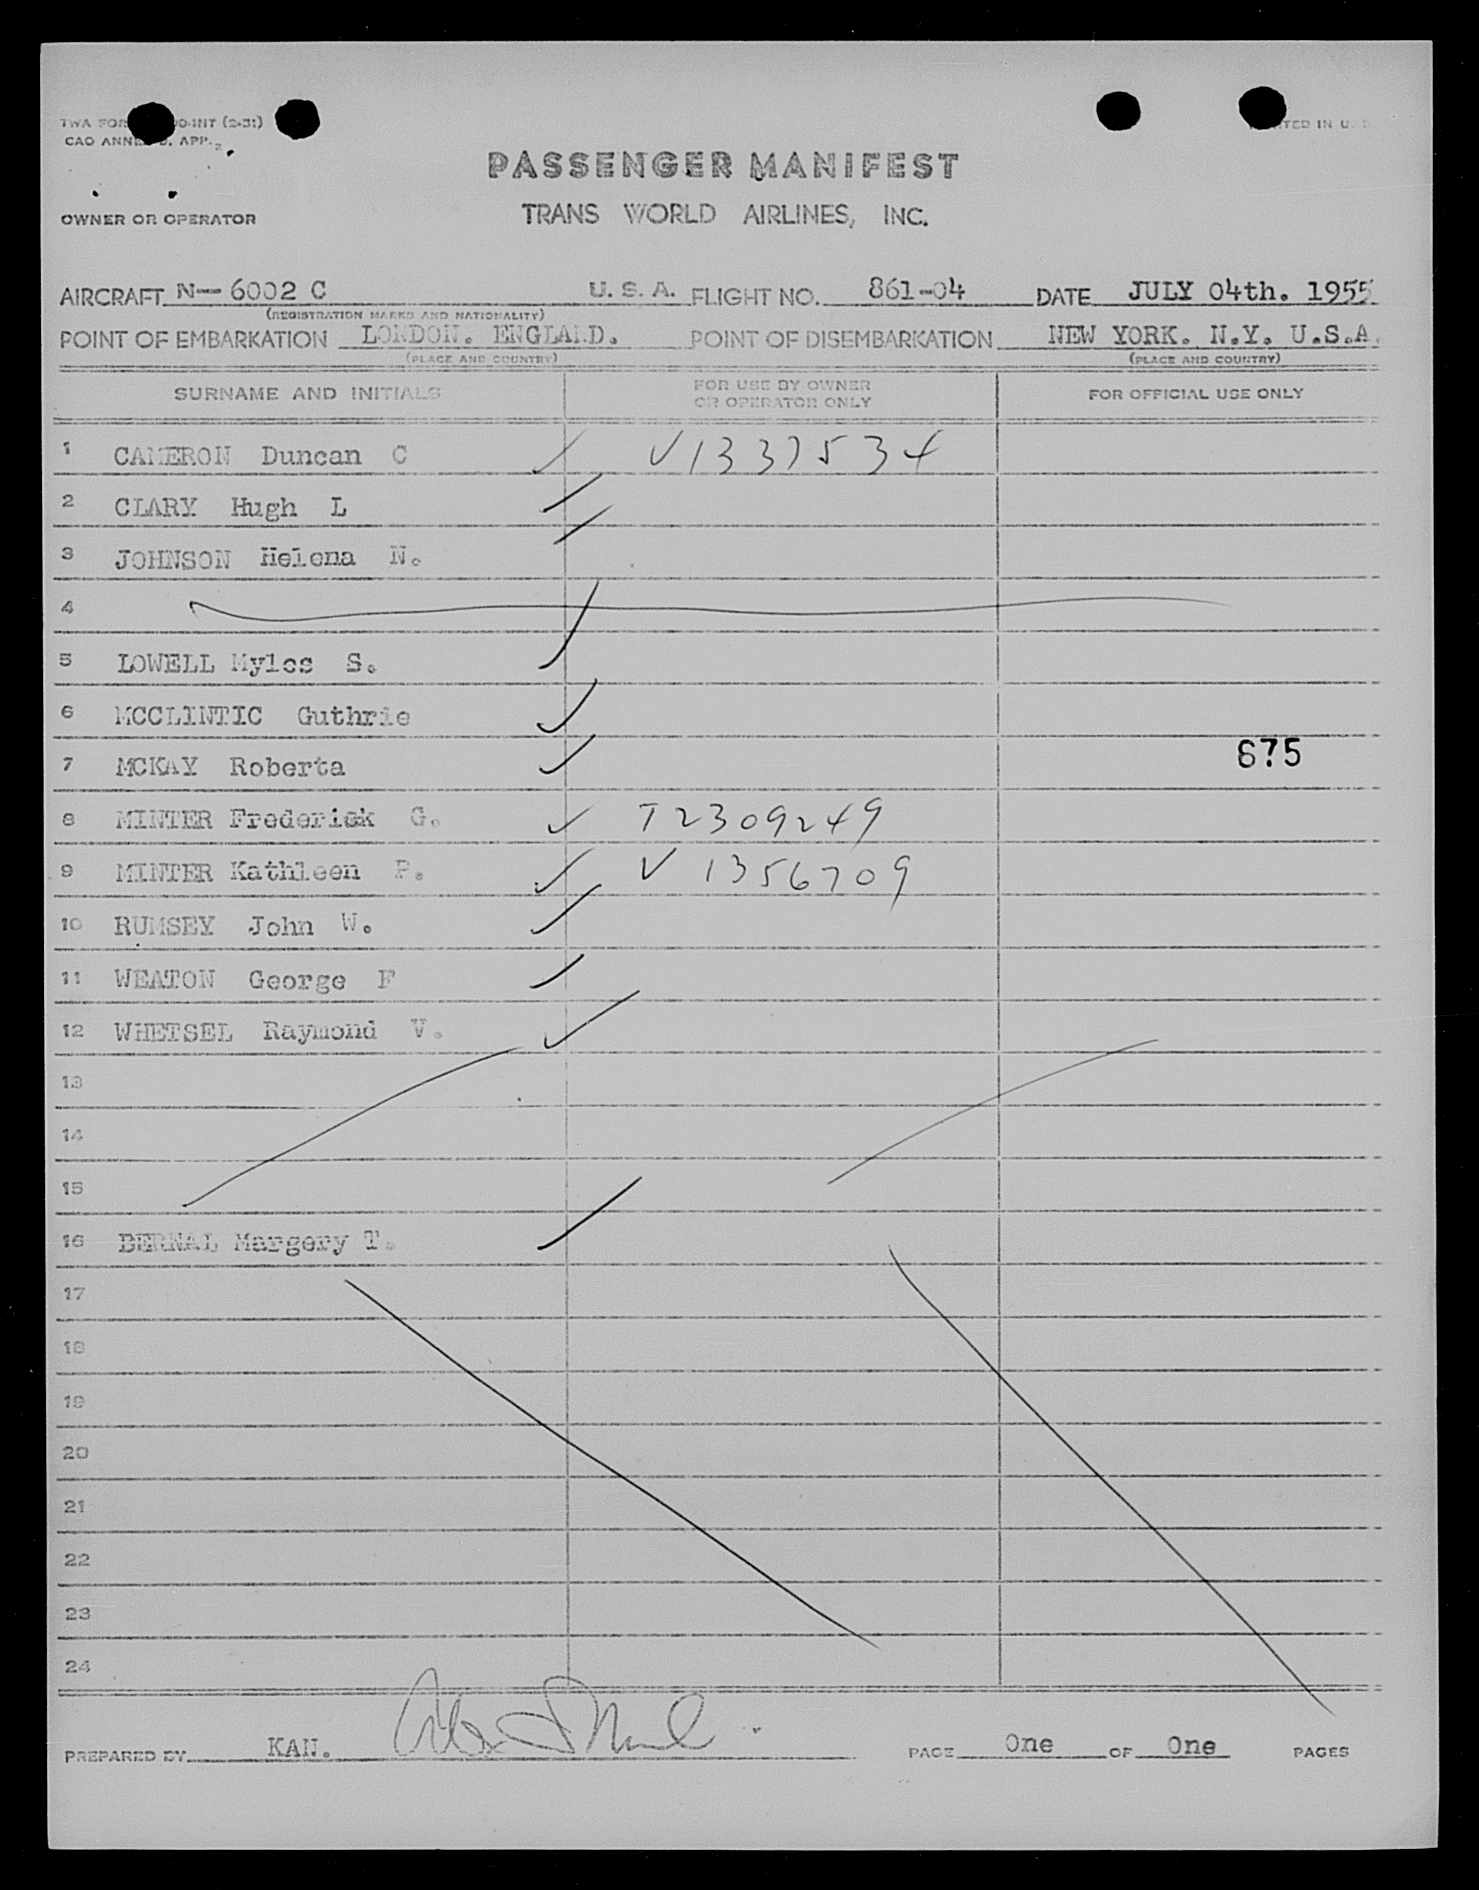 TWA FOR
INT (2-51)
PRINTED IN U. S.
CAO ANNEX 9, APP. 2
PASSENGER MANIFEST
OWNER OR OPERATOR
TRANS WORLD AIRLINES, INC.
AIRCRAFT N-6002 C U. S. A. FLIGHT NO. 861-04 DATE JULY 04th. 1955
(REGISTRATION MARKS AND NATIONALITY)
POINT OF EMBARKATION LONDON. ENGLAND. POINT OF DISEMBARKATION NEW YORK. N.Y. U.S.A.
(PLACE AND COUNTRY) (PLACE AND COUNTRY)
SURNAME AND INITIALS FOR USE BY OWNER OR OPERATOR ONLY FOR OFFICIAL USE ONLY
1 CAMERON Duncan C V1337534
2 CLARY Hugh L
3 JOHNSON Helena N.
4
5 LOWELL Myles S.
6 MCCLINTIC Guthrie
7 MCKAY Roberta 675
8 MINTER Frederick G. T2309249
9 MINTER Kathleen P. V 1356709
10 RUMSEY John W.
11 WEATON George F
12 WHETSEL Raymond V.
13
14
15
16 BERNAL Margery T.
17
18
19
20
21
22
23
24
PREPARED BY KAN. PAGE One OF One PAGES